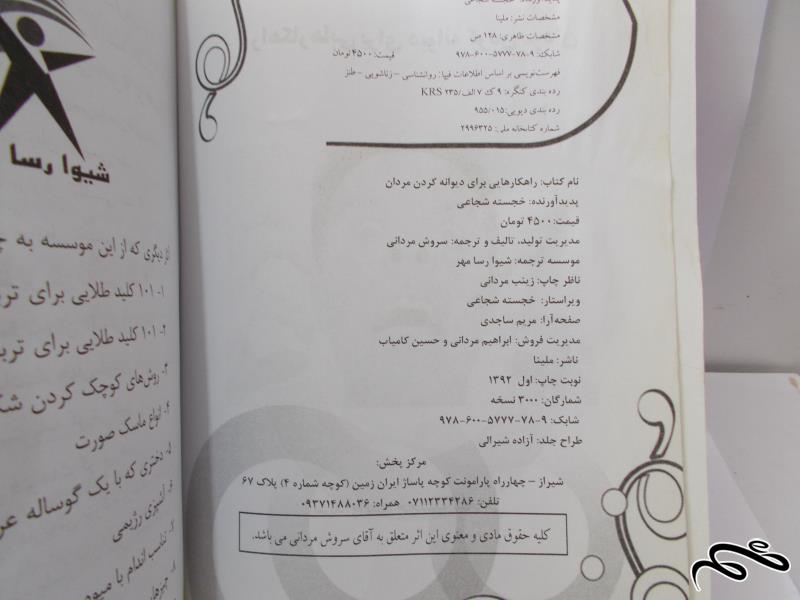 پدیدآورنده: خجسته شجاعی
مشخصات نشر: ملینا
مشخصات ظاهری: ۱۲۸ ص
شابک: ۹-۷۸-۵۷۷۷-۶۰۰-۹۷۸ قیمت: ۴۵۰۰ تومان
فهرست‌نویسی بر اساس اطلاعات فیپا: روانشناسی - زناشویی - طنز
رده بندی کنگره: ۹ ک ۷ الف/ ۲۳۵ KRS
رده بندی دیویی: ۹۵۵/۰۱۵
شماره کتابخانه ملی: ۲۹۹۶۳۲۵
نام کتاب: راهکارهایی برای دیوانه کردن مردان
پدیدآورنده: خجسته شجاعی
قیمت: ۴۵۰۰ تومان
مدیریت تولید، تالیف و ترجمه: سروش مردانی
موسسه ترجمه: شیوا رسا مهر
ناظر چاپ: زینب مردانی
ویراستار: خجسته شجاعی
صفحه‌آرا: مریم ساجدی
مدیریت فروش: ابراهیم مردانی و حسین کامیاب
ناشر: ملینا
نوبت چاپ: اول ۱۳۹۲
شمارگان: ۳۰۰۰ نسخه
شابک: ۹-۷۸-۵۷۷۷-۶۰۰-۹۷۸
طراح جلد: آزاده شیرالی
مرکز پخش:
شیراز - چهارراه پارامونت کوچه پاساژ ایران زمین (کوچه شماره ۴) پلاک ۶۷
تلفن: ۰۷۱۱۲۳۳۴۲۸۶ همراه: ۰۹۳۷۱۴۸۸۰۳۶
کلیه حقوق مادی و معنوی این اثر متعلق به آقای سروش مردانی می باشد.
شیوا رسا
دیگری که از این موسسه به
۱- ۱۰۱ کلید طلایی برای
۲- ۱۰۱ کلید طلایی برای
۳- روش‌های کوچک کردن
۴- انواع ماسک صورت
۵- دختری که با یک گوساله
۶- آشپزی رژیمی
۷- تناسب اندام با